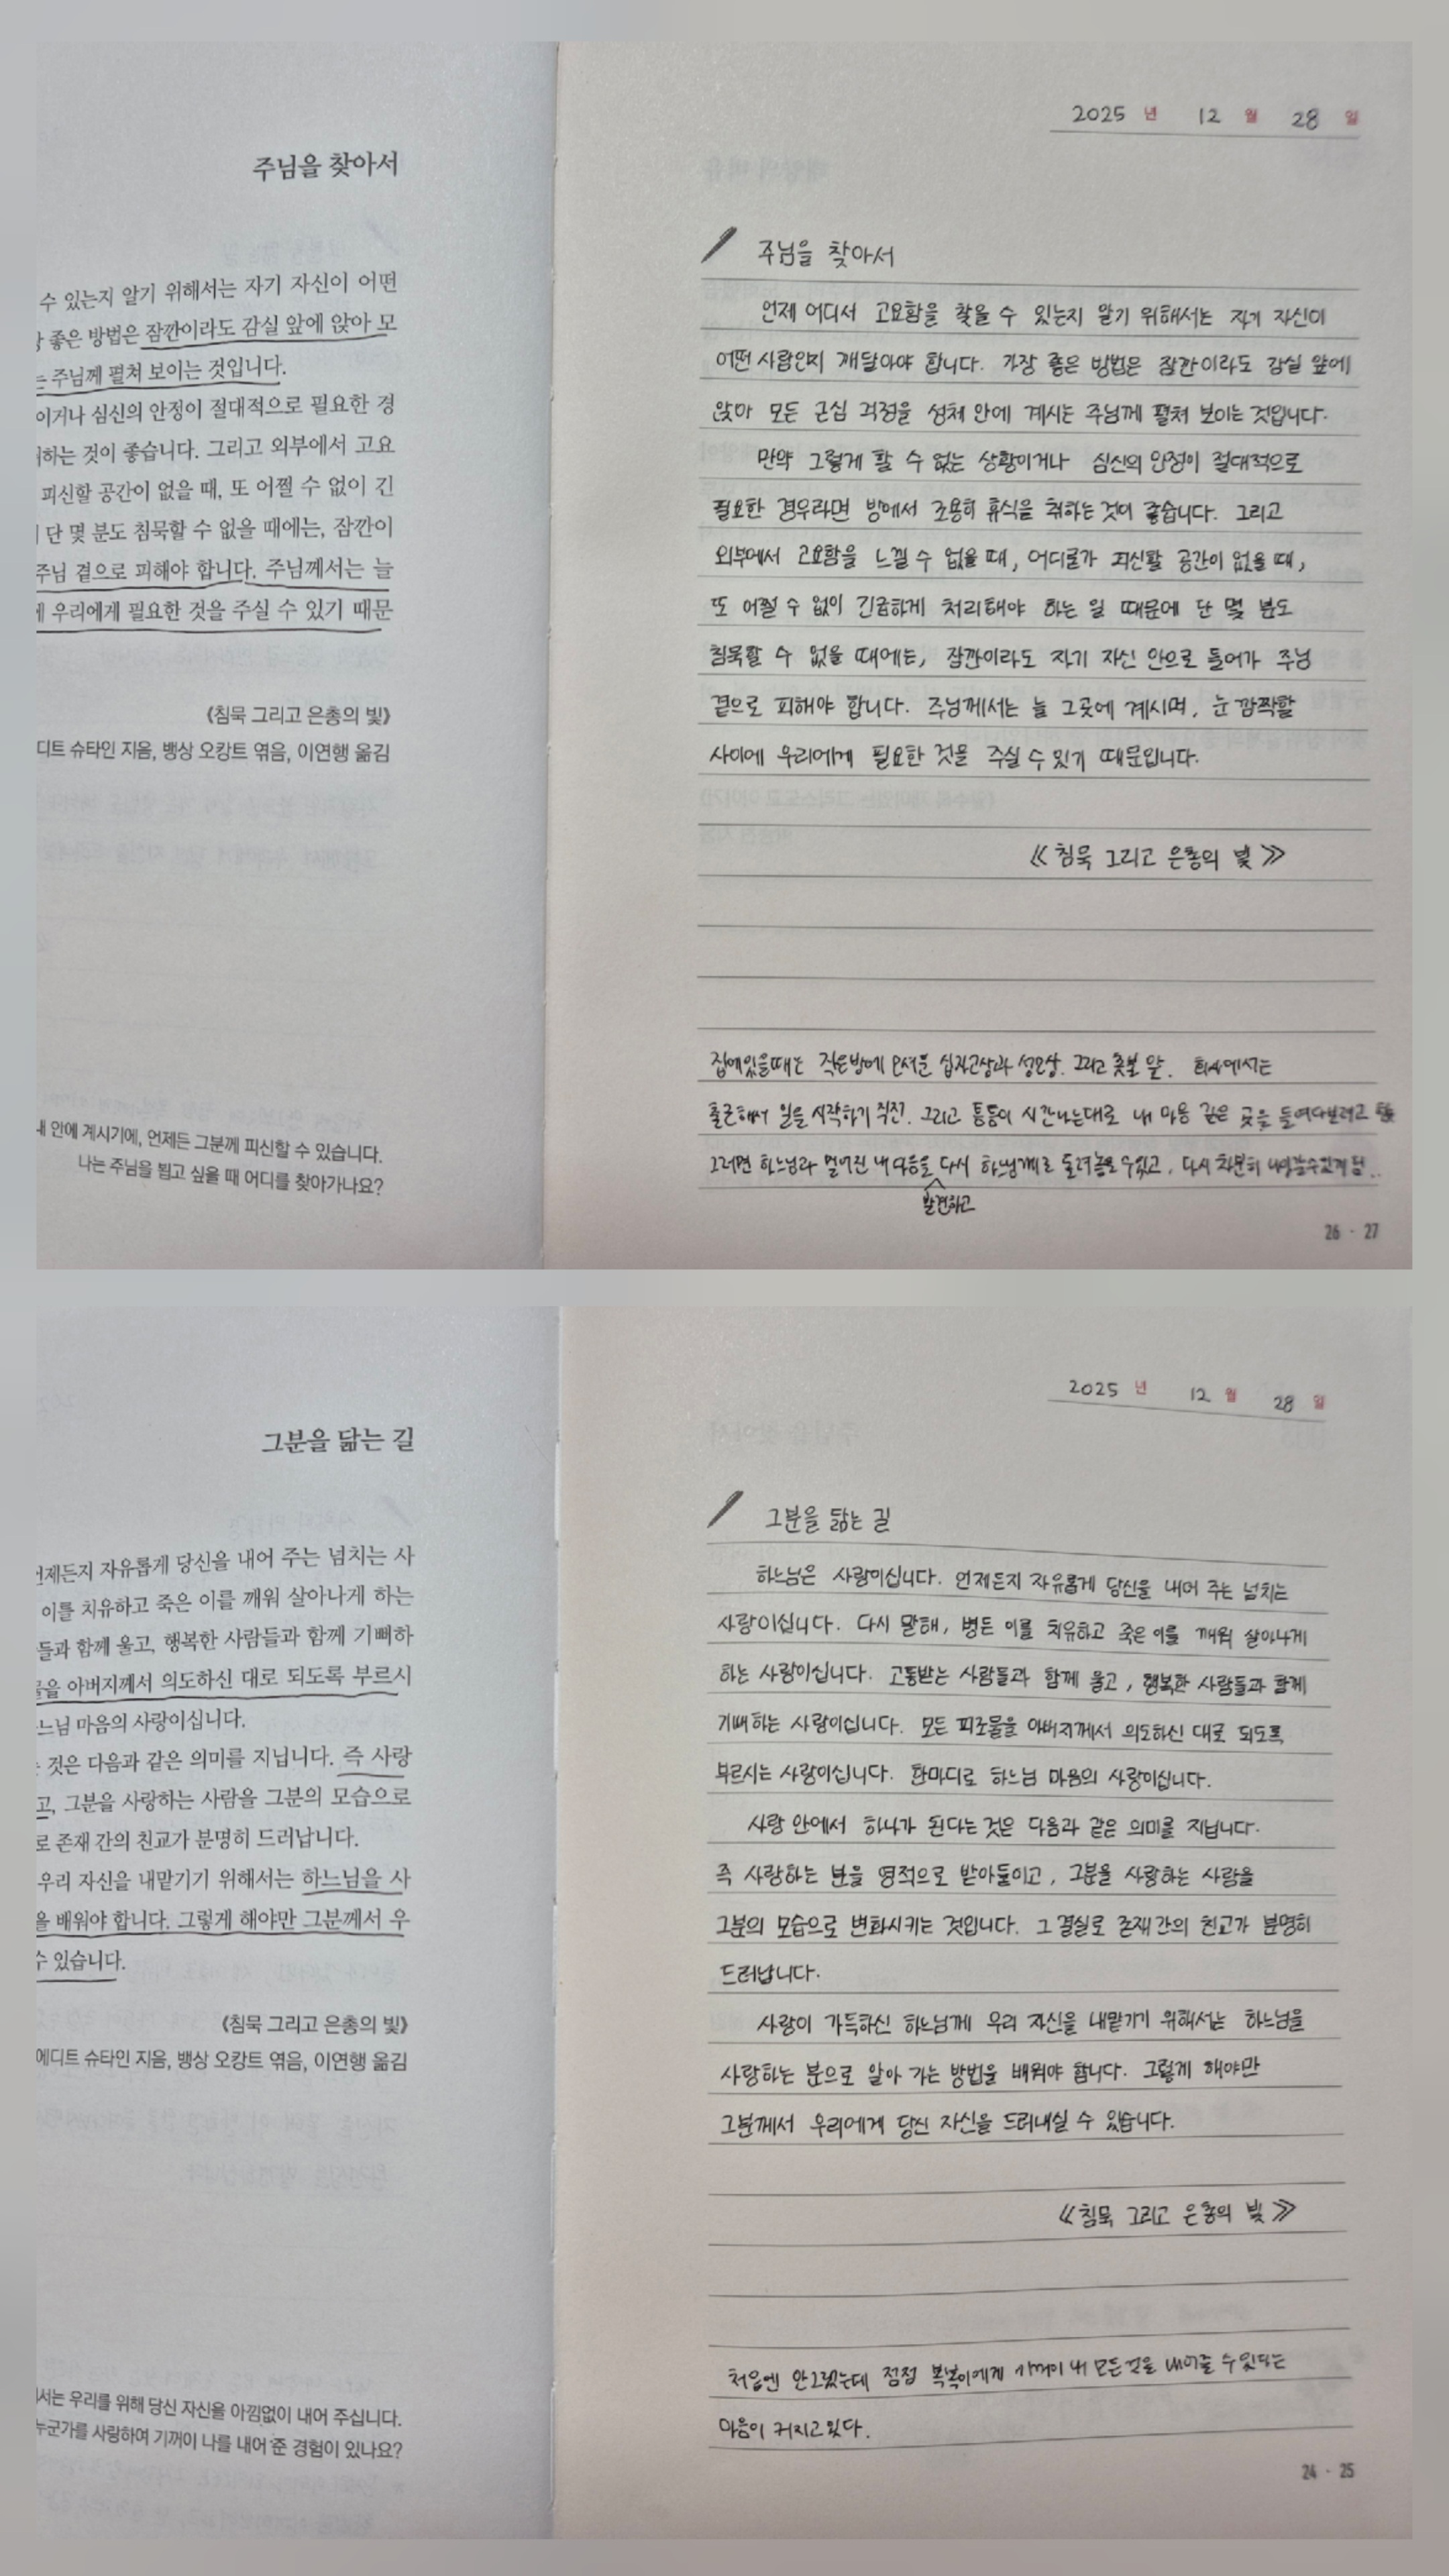 주님을 찾아서
수 있는지 알기 위해서는 자기 자신이 어떤
좋은 방법은 잠깐이라도 감실 앞에 앉아 모
주님께 펼쳐 보이는 것입니다.
이거나 심신의 안정이 절대적으로 필요한 경
하는 것이 좋습니다. 그리고 외부에서 고요
피신할 공간이 없을 때, 또 어쩔 수 없이 긴
단 몇 분도 침묵할 수 없을 때에는, 잠깐이
주님 곁으로 피해야 합니다. 주님께서는 늘
우리에게 필요한 것을 주실 수 있기 때문
《침묵 그리고 은총의 빛》
디트 슈타인 지음, 뱅상 오캉트 엮음, 이연행 옮김
내 안에 계시기에, 언제든 그분께 피신할 수 있습니다.
나는 주님을 뵙고 싶을 때 어디를 찾아가나요?
2025 년 12 월 28 일
주님을 찾아서
언제 어디서 고요함을 찾을 수 있는지 알기 위해서는 자기 자신이
어떤 사람인지 깨달아야 합니다. 가장 좋은 방법은 잠깐이라도 감실 앞에
앉아 모든 근심 걱정을 성체 안에 계시는 주님께 펼쳐 보이는 것입니다.
만약 그렇게 할 수 없는 상황이거나 심신의 안정이 절대적으로
필요한 경우라면 방에서 조용히 휴식을 취하는 것이 좋습니다. 그리고
외부에서 고요함을 느낄 수 없을 때, 어디론가 피신할 공간이 없을 때,
또 어쩔 수 없이 긴급하게 처리해야 하는 일 때문에 단 몇 분도
침묵할 수 없을 때에는, 잠깐이라도 자기 자신 안으로 들어가 주님
곁으로 피해야 합니다. 주님께서는 늘 그곳에 계시며, 눈 깜짝할
사이에 우리에게 필요한 것을 주실 수 있기 때문입니다.
《침묵 그리고 은총의 빛》
집에있을때는 작은방에 모셔둔 십자고상과 성모상. 그리고 촛불 앞. 회사에서는
출근해서 일을 시작하기 직전. 그리고 틈틈이 시간나는대로 내 마음 깊은 곳을 들여다보려고 함
그러면 하느님과 멀어진 내 마음을 다시 하느님께로 돌려놓을 수있고, 다시 차분히
발견하고
26 · 27
그분을 닮는 길
언제든지 자유롭게 당신을 내어 주는 넘치는 사
이를 치유하고 죽은 이를 깨워 살아나게 하는
들과 함께 울고, 행복한 사람들과 함께 기뻐하
을 아버지께서 의도하신 대로 되도록 부르시
느님 마음의 사랑이십니다.
것은 다음과 같은 의미를 지닙니다. 즉 사랑
고, 그분을 사랑하는 사람을 그분의 모습으로
로 존재 간의 친교가 분명히 드러납니다.
우리 자신을 내맡기기 위해서는 하느님을 사
을 배워야 합니다. 그렇게 해야만 그분께서 우
수 있습니다.
《침묵 그리고 은총의 빛》
에디트 슈타인 지음, 뱅상 오캉트 엮음, 이연행 옮김
서는 우리를 위해 당신 자신을 아낌없이 내어 주십니다.
누군가를 사랑하여 기꺼이 나를 내어 준 경험이 있나요?
2025 년 12 월 28 일
그분을 닮는 길
하느님은 사랑이십니다. 언제든지 자유롭게 당신을 내어 주는 넘치는
사랑이십니다. 다시 말해, 병든 이를 치유하고 죽은 이를 깨워 살아나게
하는 사랑이십니다. 고통받는 사람들과 함께 울고, 행복한 사람들과 함께
기뻐하는 사랑이십니다. 모든 피조물을 아버지께서 의도하신 대로 되도록
부르시는 사랑이십니다. 한마디로 하느님 마음의 사랑이십니다.
사랑 안에서 하나가 된다는 것은 다음과 같은 의미를 지닙니다.
즉 사랑하는 분을 영적으로 받아들이고, 그분을 사랑하는 사람을
그분의 모습으로 변화시키는 것입니다. 그 결실로 존재 간의 친교가 분명히
드러납니다.
사랑이 가득하신 하느님께 우리 자신을 내맡기기 위해서는 하느님을
사랑하는 분으로 알아 가는 방법을 배워야 합니다. 그렇게 해야만
그분께서 우리에게 당신 자신을 드러내실 수 있습니다.
《침묵 그리고 은총의 빛》
처음엔 안그랬는데 점점 복복이에게 기꺼이 내 모든것을 내어줄 수있다는
마음이 커지고있다.
24 · 25